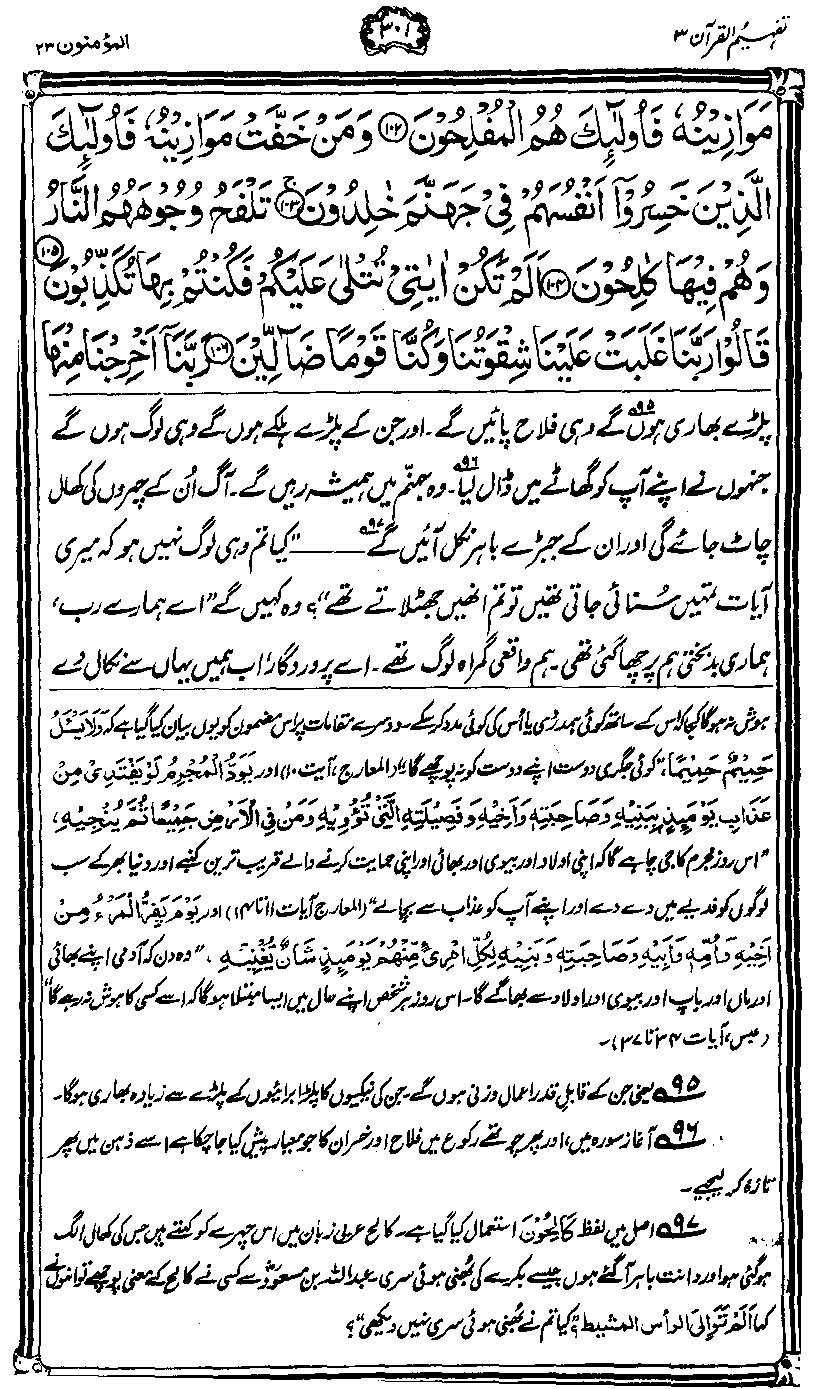 تفہیم القرآن ۳
۳۰۱
المؤمنون ۲۳
مَوَازِيْنُهٗ فَاُولٰٓئِكَ هُمُ الْمُفْلِحُوْنَ ۝۱۰۲ وَمَنْ خَفَّتْ مَوَازِيْنُهٗ فَاُولٰٓئِكَ
الَّذِيْنَ خَسِرُوْٓا اَنْفُسَهُمْ فِيْ جَهَنَّمَ خٰلِدُوْنَ ۝۱۰۳ۚ تَلْفَحُ وُجُوْهَهُمُ النَّارُ
وَهُمْ فِيْهَا كٰلِحُوْنَ ۝۱۰۴ اَلَمْ تَكُنْ اٰيٰتِيْ تُتْلٰى عَلَيْكُمْ فَكُنْتُمْ بِهَا تُكَذِّبُوْنَ ۝۱۰۵
قَالُوْا رَبَّنَا غَلَبَتْ عَلَيْنَا شِقْوَتُنَا وَكُنَّا قَوْمًا ضَآلِّيْنَ ۝۱۰۶ رَبَّنَآ اَخْرِجْنَا مِنْهَا
پلڑے بھاری ہوں گے۹۵ وہی فلاح پائیں گے۔ اور جن کے پلڑے ہلکے ہوں گے وہی لوگ ہوں گے
جنہوں نے اپنے آپ کو گھاٹے میں ڈال لیا۹۶۔ وہ جہنّم میں ہمیشہ رہیں گے۔ آگ اُن کے چہروں کی کھال
چاٹ جائے گی اور ان کے جبڑے باہر نکل آئیں گے۹۷ ——— ”کیا تم وہی لوگ نہیں ہو کہ میری
آیات تمہیں سُنائی جاتی تھیں تو تم انھیں جھٹلاتے تھے“؟ وہ کہیں گے ”اے ہمارے رب،
ہماری بدبختی ہم پر چھا گئی تھی۔ ہم واقعی گمراہ لوگ تھے۔ اے پروردگار، اب ہمیں یہاں سے نکال دے
ہوش نہ ہوگا کجا کہ اس کے ساتھ کوئی ہمدردی یا اُس کی کوئی مدد کر سکے۔ دوسرے مقامات پر اس مضمون کو یوں بیان کیا گیا ہے کہ وَلَا يَسْئَلُ
حَمِيْمٌ حَمِيْمًا، ”کوئی جگری دوست اپنے دوست کو نہ پوچھے گا“ (المعارج، آیت ۱۰) اور يَوَدُّ الْمُجْرِمُ لَوْ يَفْتَدِيْ مِنْ
عَذَابِ يَوْمَئِذٍ بِبَنِيْهِ وَصَاحِبَتِهٖ وَاَخِيْهِ وَفَصِيْلَتِهِ الَّتِيْ تُؤْوِيْهِ وَمَنْ فِي الْاَرْضِ جَمِيْعًا ثُمَّ يُنْجِيْهِ،
”اس روز مجرم کا جی چاہے گا کہ اپنی اولاد اور بیوی اور بھائی اور اپنی حمایت کرنے والے قریب ترین کنبے اور دنیا بھر کے سب
لوگوں کو فدیے میں دے دے اور اپنے آپ کو عذاب سے بچا لے“ (المعارج آیات ۱۱ تا ۱۴) اور يَوْمَ يَفِرُّ الْمَرْءُ مِنْ
اَخِيْهِ وَاُمِّهٖ وَاَبِيْهِ وَصَاحِبَتِهٖ وَبَنِيْهِ لِكُلِّ امْرِئٍ مِّنْهُمْ يَوْمَئِذٍ شَاْنٌ يُّغْنِيْهِ، ”وہ دن کہ آدمی اپنے بھائی
اور ماں اور باپ اور بیوی اور اولاد سے بھاگے گا۔ اس روز ہر شخص اپنے حال میں ایسا مبتلا ہوگا کہ اسے کسی کا ہوش نہ رہے گا“
(عبس، آیات ۳۴ تا ۳۷)۔
۹۵ یعنی جن کے قابلِ قدر اعمال وزنی ہوں گے۔ جن کی نیکیوں کا پلڑا برائیوں کے پلڑے سے زیادہ بھاری ہوگا۔
۹۶ آغازِ سورہ میں، اور پھر چوتھے رکوع میں فلاح اور خسران کا جو معیار پیش کیا جا چکا ہے اسے ذہن میں پھر
تازہ کر لیجیے۔
۹۷ اصل میں لفظ كَالِحُوْنَ استعمال کیا گیا ہے۔ کالح عربی زبان میں اس چہرے کو کہتے ہیں جس کی کھال الگ
ہو گئی ہو اور دانت باہر آ گئے ہوں جیسے بکرے کی بُھنی ہوئی سری۔ عبداللہ بن مسعودؓ سے کسی نے کالح کے معنی پوچھے تو انہوں نے
کہا اَلَمْ تَرَ اِلَى الرأس المشيط؟ ”کیا تم نے بُھنی ہوئی سری نہیں دیکھی“؟